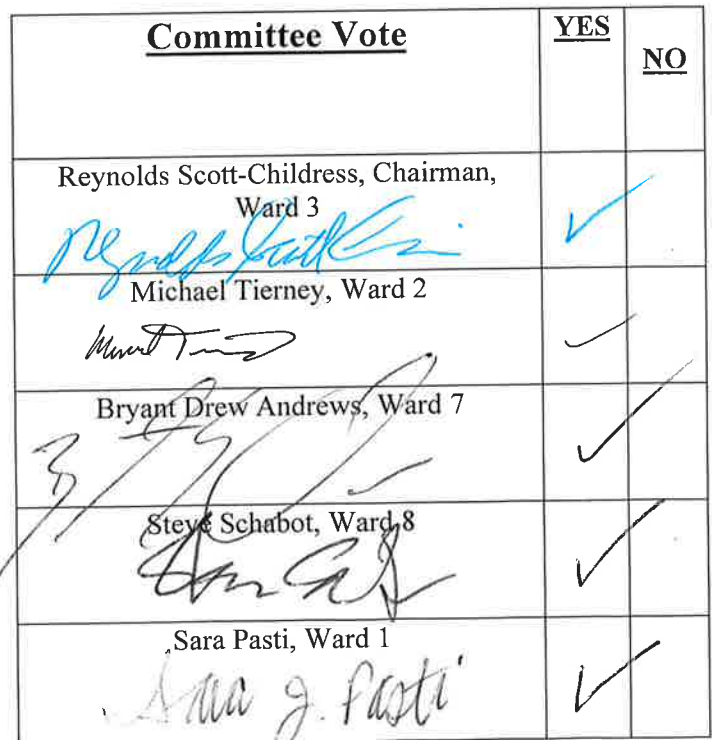 Committee Vote YES NO
Reynolds Scott-Childress, Chairman,
Ward 3
✓
Michael Tierney, Ward 2
✓
Bryant Drew Andrews, Ward 7
✓
Steve Schabot, Ward 8
✓
Sara Pasti, Ward 1
Sara J. Pasti ✓